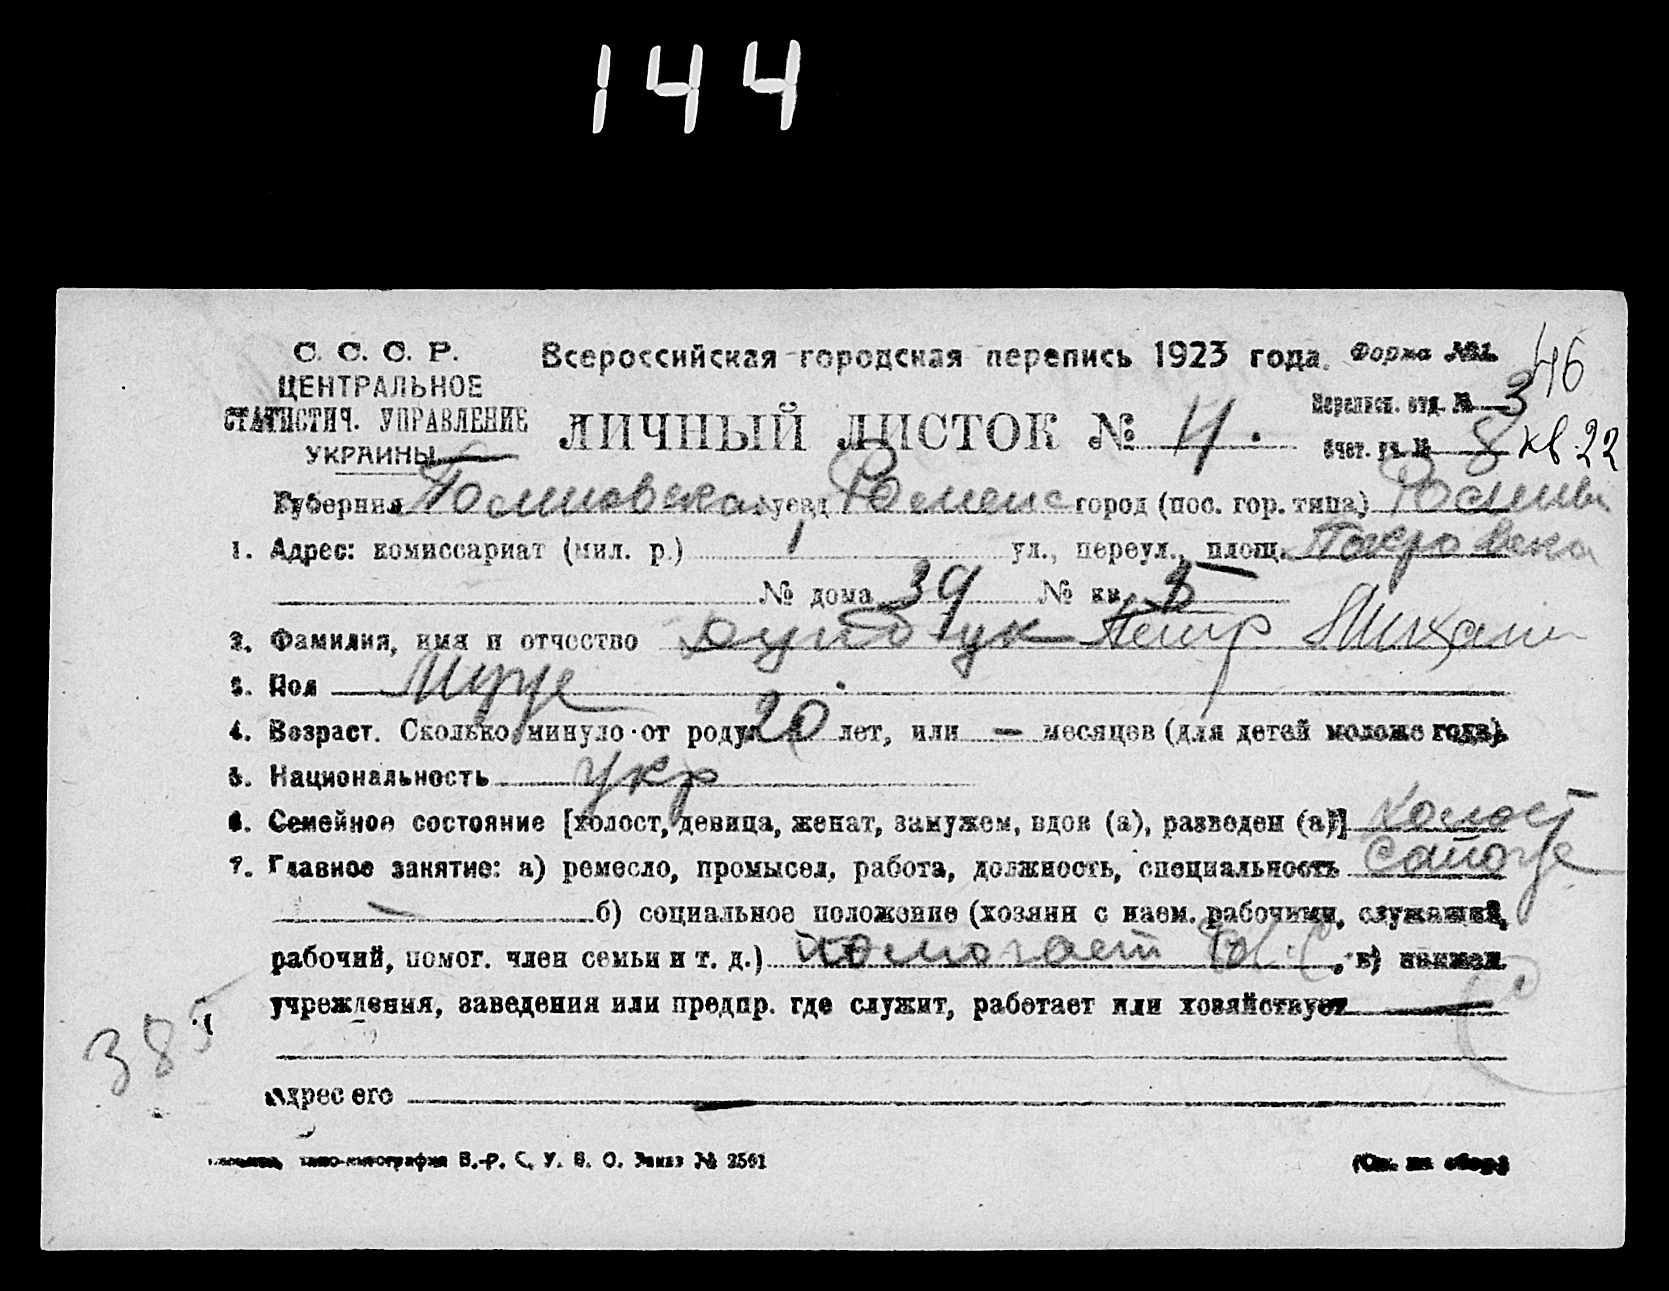 144
С. С. С. Р.
ЦЕНТРАЛЬНОЕ
СТАТИСТИЧ. УПРАВЛЕНИЕ
УКРАИНЫ
Всероссийская городская перепись 1923 года. Форма №1.
46
Переписн. отд. № 3
ЛИЧНЫЙ ЛИСТОК № 4.
Счет. уч. № 8 кв. 22
Губерния уезд Роменс город (пос. гор. типа) Ромны
1. Адрес: комиссариат (мил. р.) 1 ул., переул., площ. Покровска
№ дома 39 № кв. 3
2. Фамилия, имя и отчество Петр Михаил
3. Пол Муж
4. Возраст. Сколько минуло от роду 20 лет, или — месяцев (для детей моложе года).
5. Национальность укр
6. Семейное состояние [холост, девица, женат, замужем, вдов (а), разведен (а)] холост
7. Главное занятие: а) ремесло, промысел, работа, должность, специальность сапож
— б) социальное положение (хозяин с наем. рабочими, служащий,
рабочий, помог. член семьи и т. д.) помогает , в) наимен.
учреждения, заведения или предпр. где служит, работает или хозяйствует —
385
адрес его —
В.-Р. С. У. В. О. Заказ № 2561
(См. на обор.)